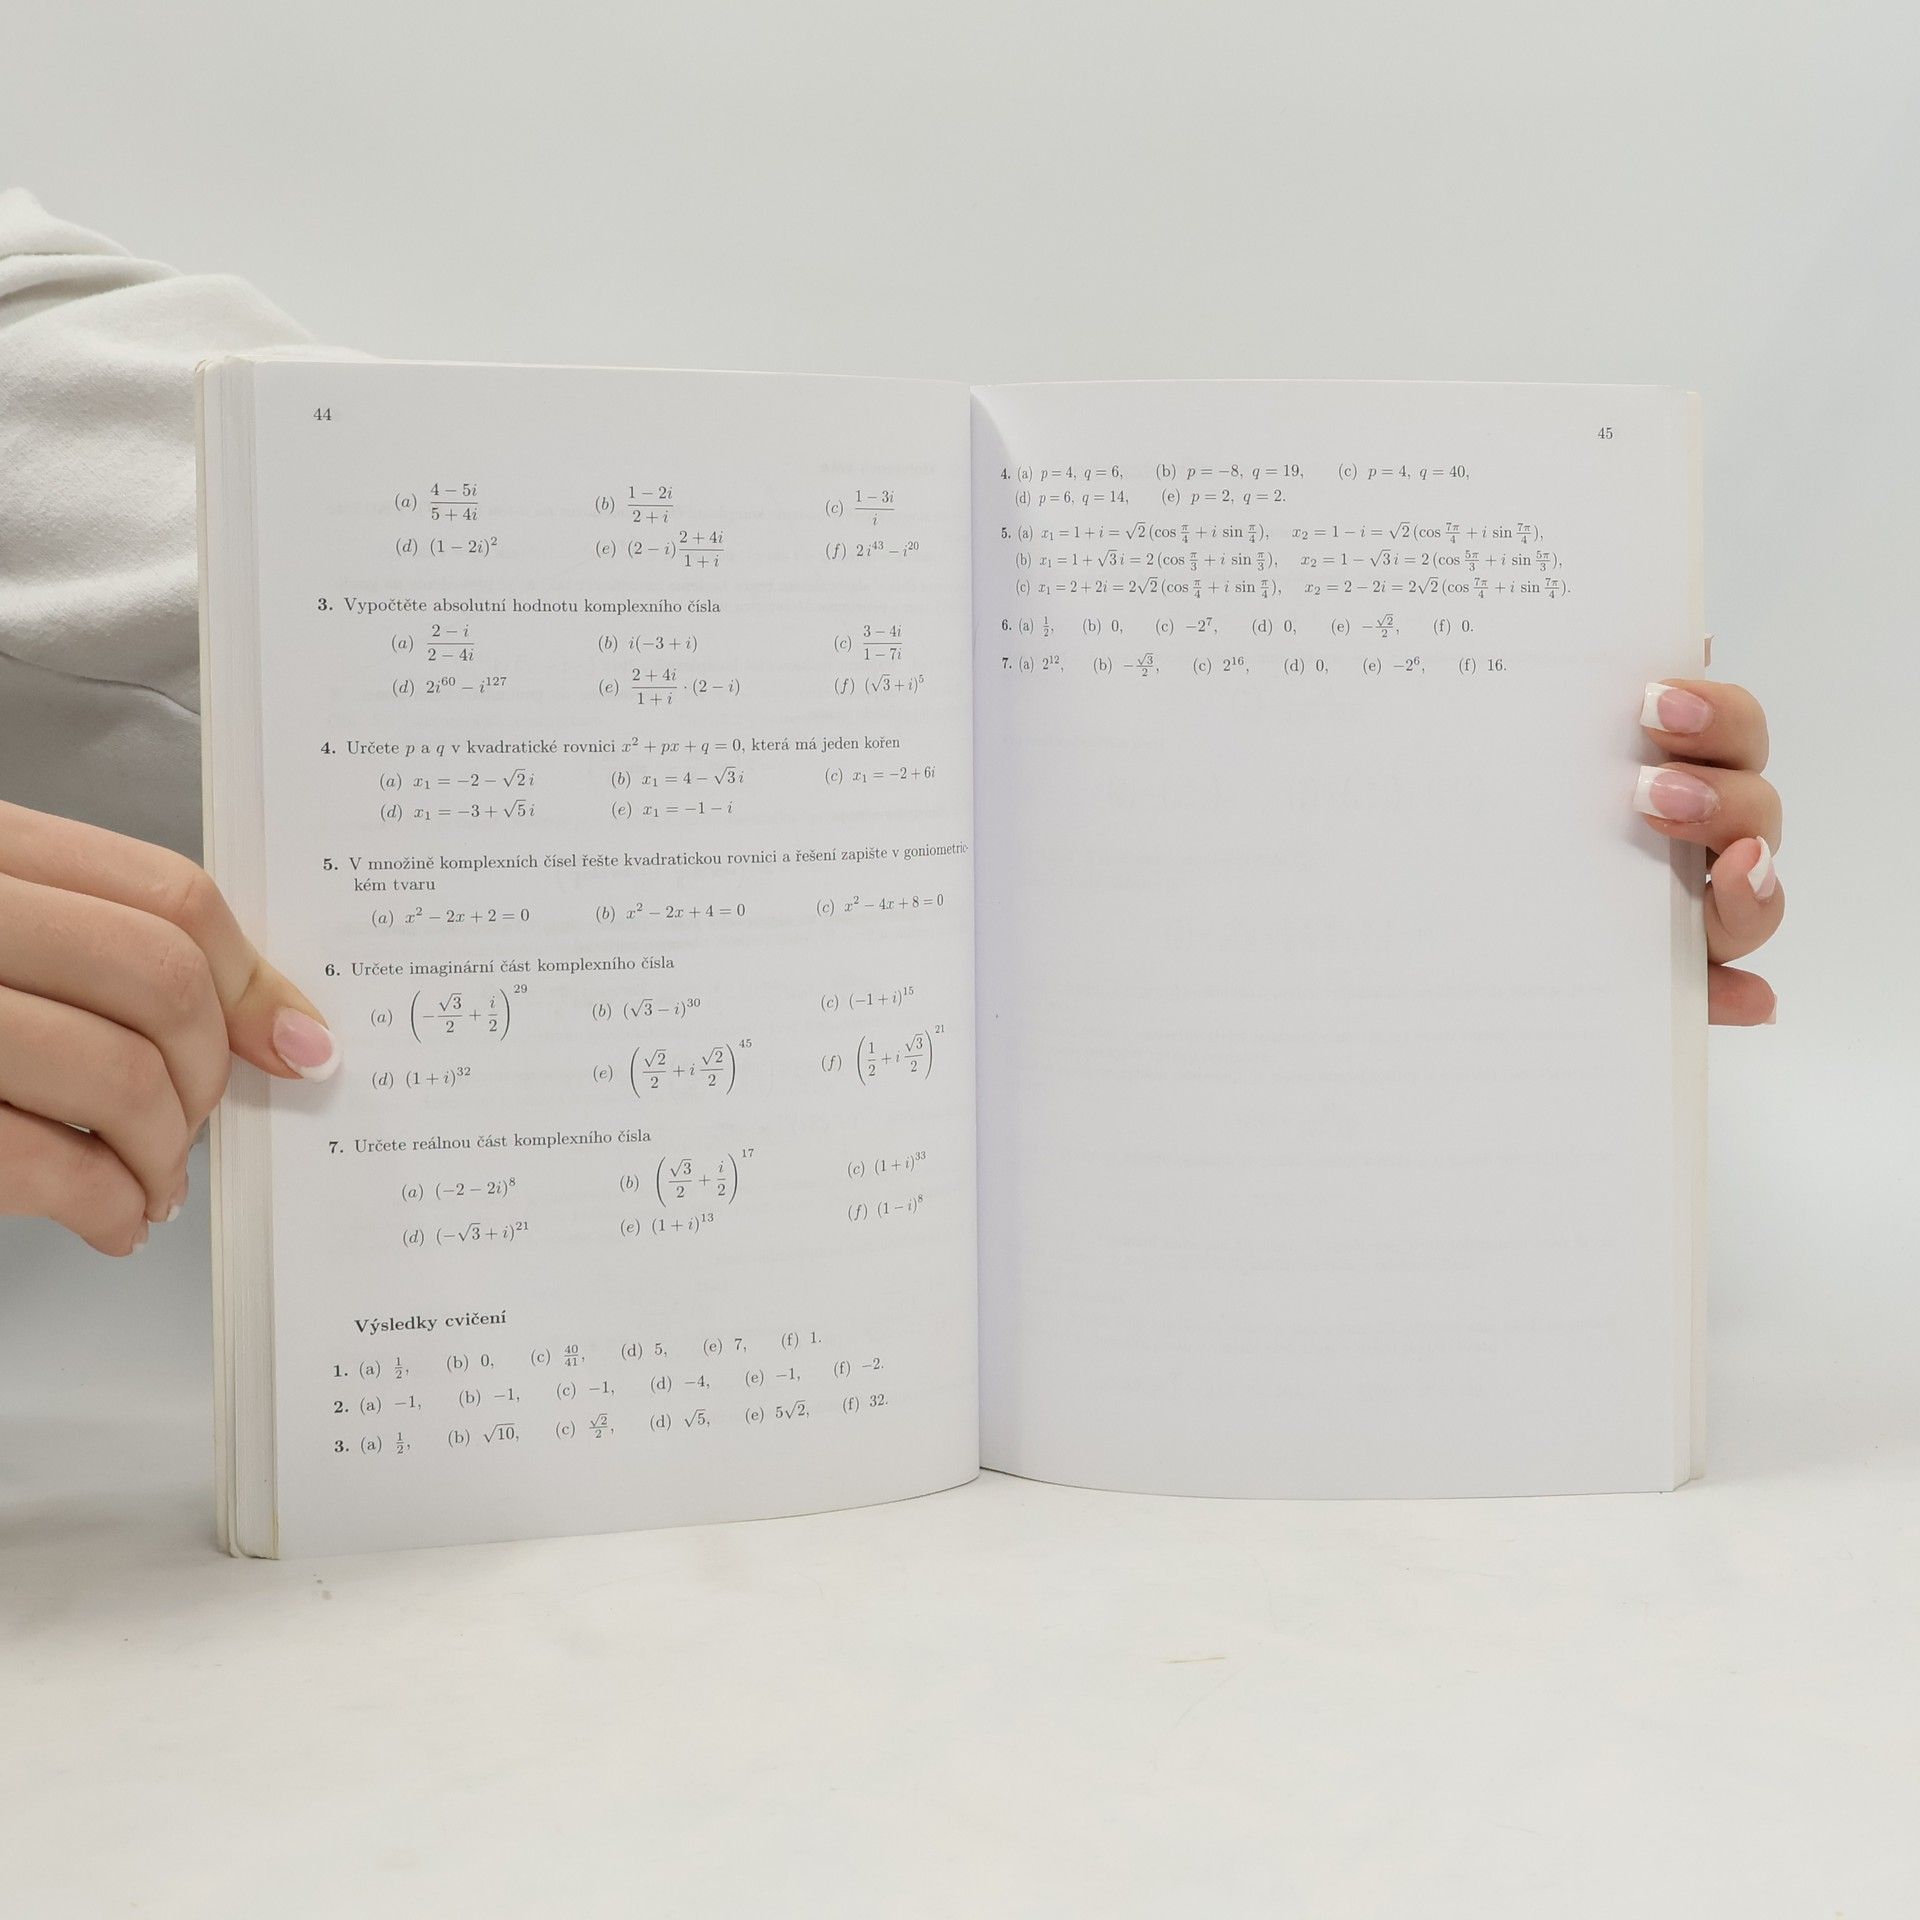 44
(a) (4 − 5i)/(5 + 4i) (b) (1 − 2i)/(2 + i) (c) (1 − 3i)/i
(d) (1 − 2i)² (e) (2 − i) (2 + 4i)/(1 + i) (f) 2i⁴³ − i²⁰
3. Vypočtěte absolutní hodnotu komplexního čísla
(a) (2 − i)/(2 − 4i) (b) i(−3 + i) (c) (3 − 4i)/(1 − 7i)
(d) 2i⁶⁰ − i¹²⁷ (e) (2 + 4i)/(1 + i) · (2 − i) (f) (√3 + i)⁵
4. Určete p a q v kvadratické rovnici x² + px + q = 0, která má jeden kořen
(a) x₁ = −2 − √2 i (b) x₁ = 4 − √3 i (c) x₁ = −2 + 6i
(d) x₁ = −3 + √5 i (e) x₁ = −1 − i
5. V množině komplexních čísel řešte kvadratickou rovnici a řešení zapište v goniometric-
kém tvaru
(a) x² − 2x + 2 = 0 (b) x² − 2x + 4 = 0 (c) x² − 4x + 8 = 0
6. Určete imaginární část komplexního čísla
(a) (−√3/2 + i/2)²⁹ (b) (√3 − i)³⁰ (c) (−1 + i)¹⁵
(d) (1 + i)³² (e) (√2/2 + i √2/2)⁴⁵ (f) (1/2 + i √3/2)²¹
7. Určete reálnou část komplexního čísla
(a) (−2 − 2i)⁸ (b) (√3/2 + i/2)¹⁷ (c) (1 + i)³³
(d) (−√3 + i)²¹ (e) (1 + i)¹³ (f) (1 − i)⁸
Výsledky cvičení
1. (a) 1/2, (b) 0, (c) 40/41, (d) 5, (e) 7, (f) 1.
2. (a) −1, (b) −1, (c) −1, (d) −4, (e) −1, (f) −2.
3. (a) 1/2, (b) √10, (c) √2/2, (d) √5, (e) 5√2, (f) 32.
45
4. (a) p = 4, q = 6, (b) p = −8, q = 19, (c) p = 4, q = 40,
(d) p = 6, q = 14, (e) p = 2, q = 2.
5. (a) x₁ = 1 + i = √2 (cos π/4 + i sin π/4), x₂ = 1 − i = √2 (cos 7π/4 + i sin 7π/4),
(b) x₁ = 1 + √3 i = 2 (cos π/3 + i sin π/3), x₂ = 1 − √3 i = 2 (cos 5π/3 + i sin 5π/3),
(c) x₁ = 2 + 2i = 2√2 (cos π/4 + i sin π/4), x₂ = 2 − 2i = 2√2 (cos 7π/4 + i sin 7π/4).
6. (a) 1/2, (b) 0, (c) −2⁷, (d) 0, (e) −√2/2, (f) 0.
7. (a) 2¹², (b) −√3/2, (c) 2¹⁶, (d) 0, (e) −2⁶, (f) 16.